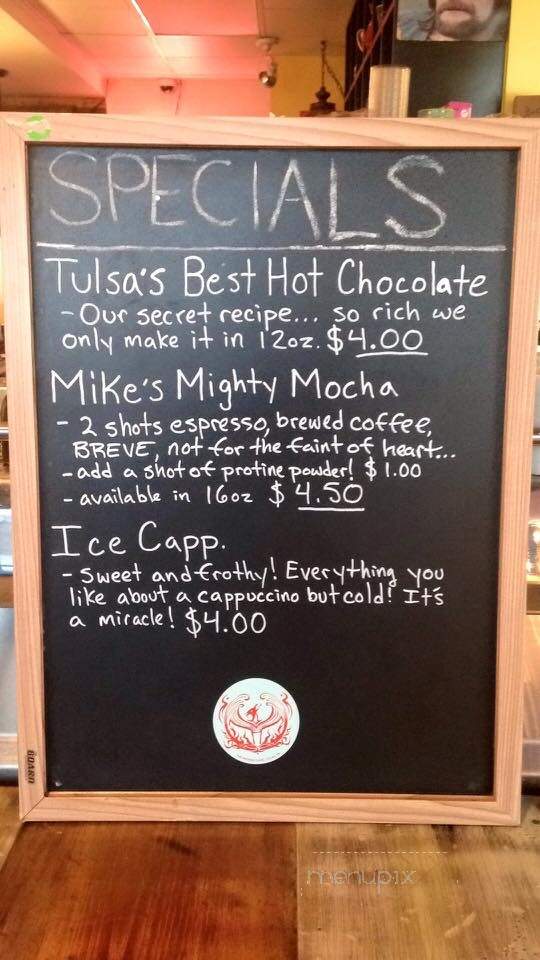 SPECIALS
Tulsa's Best Hot Chocolate
- Our secret recipe... so rich we
only make it in 12oz. $4.00
Mike's Mighty Mocha
- 2 shots espresso, brewed coffee,
BREVE, not for the faint of heart...
- add a shot of protine powder! $1.00
- available in 16oz $4.50
Ice Capp.
- Sweet and frothy! Everything you
like about a cappuccino but cold! It's
a miracle! $4.00
BOARD
menupix